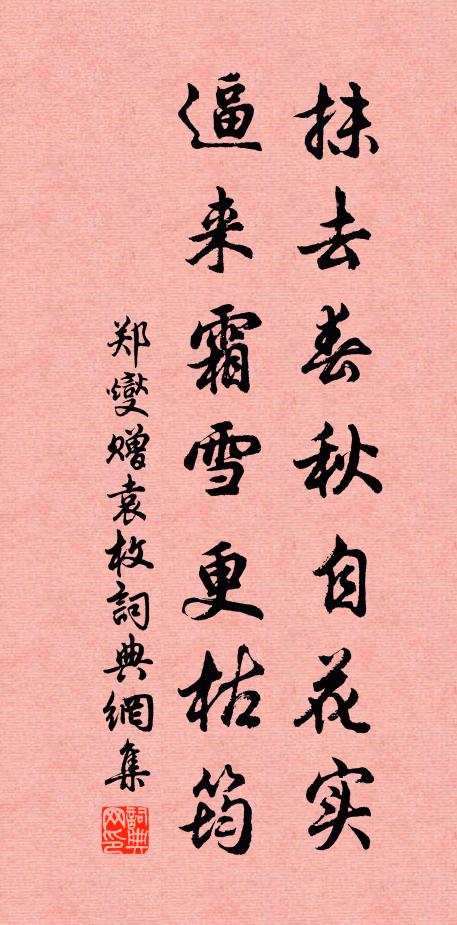 抹去春秋自花实
逼来霜雪更枯筠
郑燮赠袁枚詞典網集
詞典网印